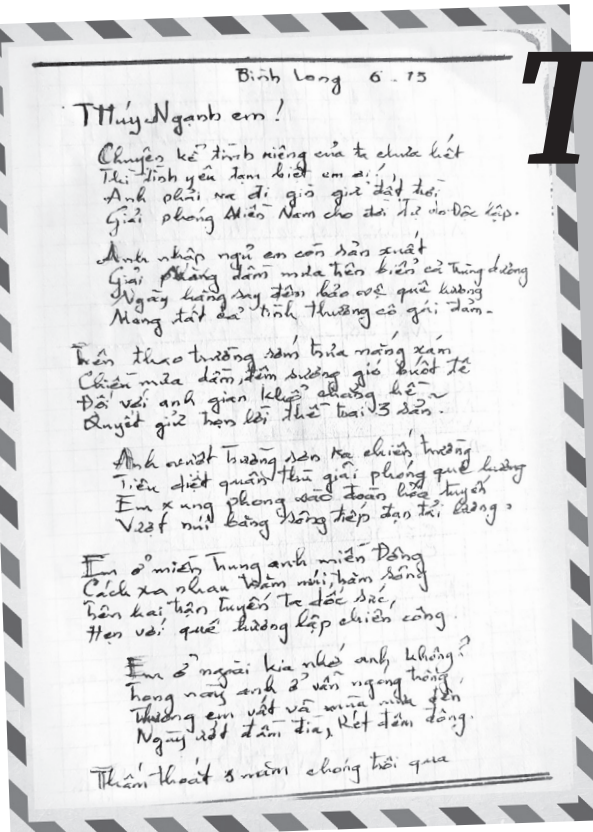 Bình Long 6-75
Thúy Ngạnh em!
Chuyện kể tình riêng của ta chưa hết
Thì tình yêu tạm biệt em ơi!
Anh phải ra đi gìn giữ đất trời
Giải phóng Miền Nam cho đời tự do Độc lập.
Anh nhập ngũ em còn sản xuất
Giải phóng dầm mưa trên biển cả Trùng dương
Ngày hăng say đêm bảo vệ quê hương
Mang tất cả tình thương cô gái đảm.
Trên thao trường sớm trưa nắng xám
Chiều mưa dầm, đêm sương gió buốt tê
Đối với anh gian khổ chẳng hề
Quyết giữ trọn lời thề trai 3 sẵn.
Anh vượt Trường sơn ra chiến trường
Tiêu diệt quân thù giải phóng quê hương
Em xung phong vào đoàn hỏa tuyến
Vượt núi băng sông tiếp đạn tải lương,
Em ở miền Trung anh miền Đông
Cách xa nhau trăm núi, trăm sông
Trên hai trận tuyến ta dốc sức,
Hẹn với quê hương lập chiến công.
Em ở ngoài kia nhớ anh không?
Trong này anh ở vẫn ngóng trông,
Thương em vất vả mùa mưa đến
Ngày ướt đầm đìa, Rét đêm đông.
Thấm thoát 3 năm chóng trôi qua
T